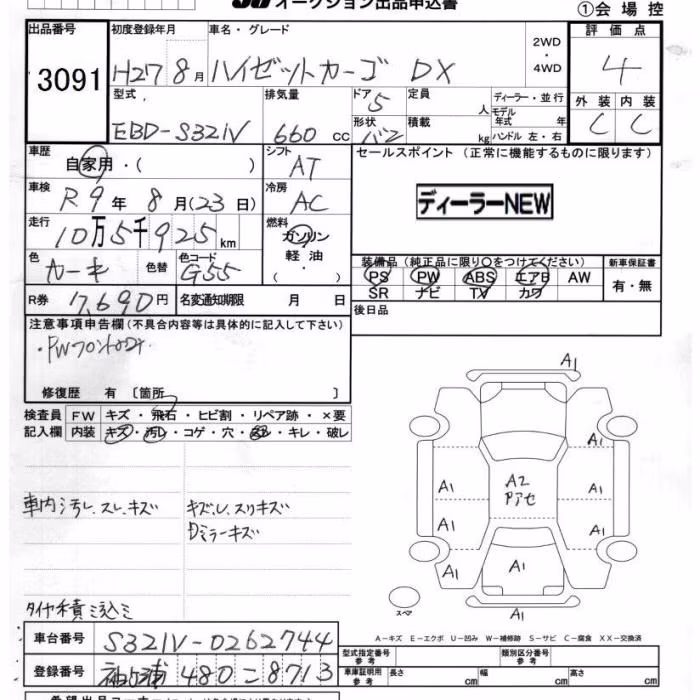 オークション出品申込書
①会場控
出品番号
3091
初度登録年月
H27 8月
車名・グレード
ハイゼットカーゴ DX
2WD
・
4WD
評価点
4
外装 内装
C C
型式
EBD-S321V
排気量
660 cc
ドア
5
形状
バン
定員
人
積載
kg
ディーラー・並行
モデル年式 年
ハンドル 左・右
車歴
自家用・( )
シフト
AT
セールスポイント (正常に機能するものに限ります)
ディーラーNEW
車検
R9年 8月(23日)
冷房
AC
走行
10万5千925km
燃料
ガソリン
軽油
( )
色
カーキ
色替
色コード
G55
装備品 (純正品に限り○をつけてください)
PS PW ABS エアB AW
SR ナビ TV カワ
新車保証書
有・無
R券
7,690円
名変通知期限 月 日
後日品
注意事項申告欄 (不具合内容等は具体的に記入して下さい)
・PWフロントのみ
修復歴 有 〔箇所 〕
検査員
記入欄
FW キズ・飛石・ヒビ割・リペア跡・×要
内装 キズ・汚レ・コゲ・穴・スレ・キレ・破レ
車内汚レ、スレ、キズ
キズ、U、スリキズ
Dミラーキズ
タイヤ積ミ込ミ
A1
A1
A1
A2
A1
A1
A1
A1
A1
A1
A1
スペア
A-キズ E-エクボ U-凹み W-補修跡 S-サビ C-腐食 XX-交換済
車台番号
S321V-0262744
登録番号
袖ヶ浦 480 こ 8713
型式指定番号
参考
類別区分番号
参考
車庫証明用
参考
長さ cm
幅 cm
高さ cm